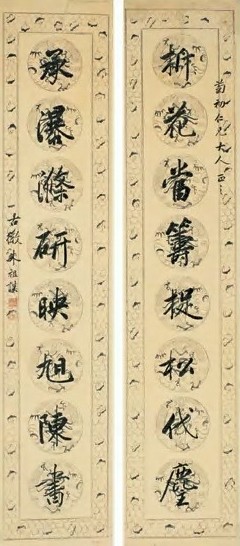 初仁兄大人正之
折花當籌捉松代麈
承瀑滌研映旭陳書
古微朱祖謀